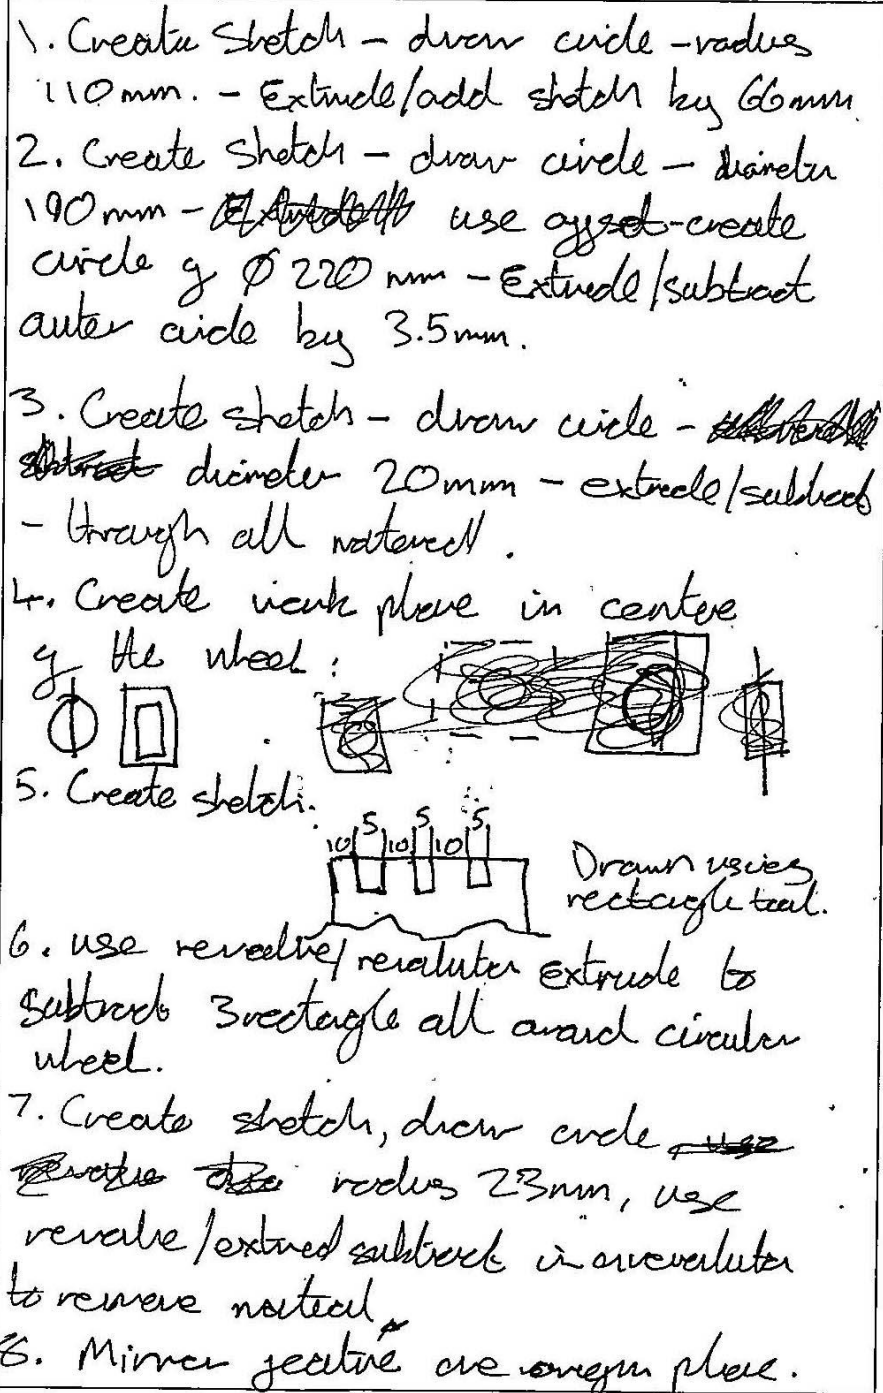 1. Create Sketch - draw circle - radius
110mm. - Extrude/add sketch by 66mm
2. Create Sketch - draw circle - diameter
190mm - use offset - create
circle of Ø 220 mm - Extrude/subtract
outer circle by 3.5mm.
3. Create sketch - draw circle -
diameter 20mm - extrude/subtract
- through all material.
4. Create work plane in centre
of the wheel:
5. Create sketch.
5 5 5
10 10 10
Drawn using
rectangle tool.
6. use revolve/revolution extrude to
subtract 3 rectangle all around circular
wheel.
7. Create sketch, draw circle
radius 23mm, use
revolve/extrued subtract in a revolution
to remove material.
8. Mirror feature one origin plane.